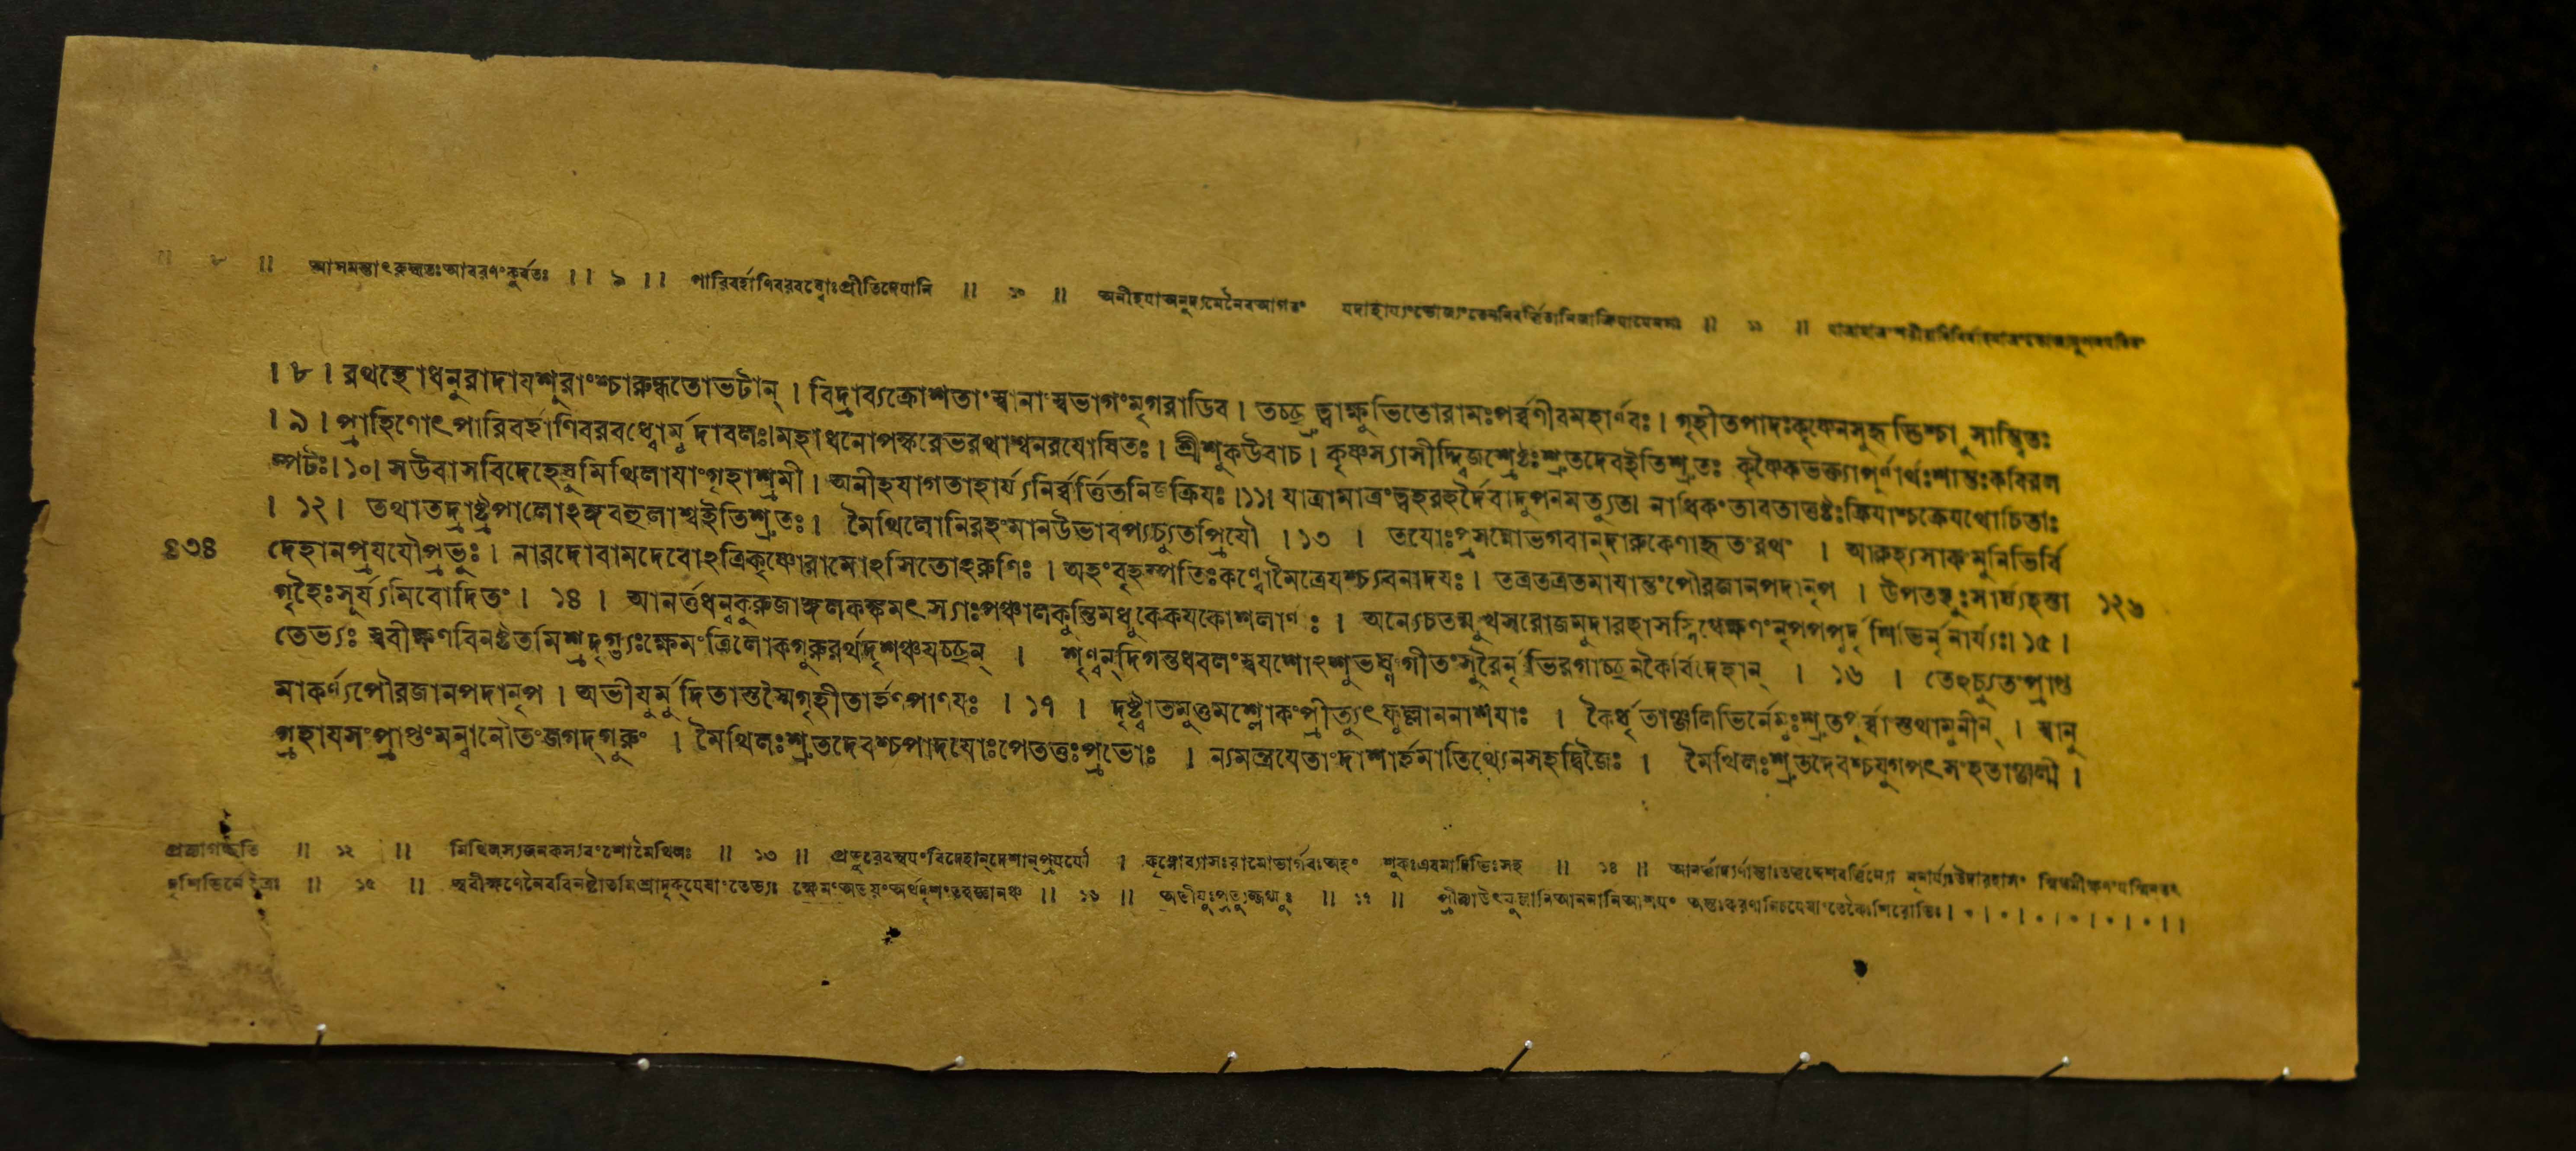 ॥ ৮ ॥ আসমন্তাৎরুন্ধতঃআবরণংকুর্বতঃ ।। ৯ ।। পারিবর্হাণিবরবধ্বোঃপ্রীতিদেয়ানি ॥ ১০ ॥ অনীহযাঅনুদ্যমেনৈবআগতং ॥ ১১ ॥
। ৮ । রথস্থোধনুরাদাযশূরাংশ্চারুন্ধতোভটান্ । বিদ্রাব্যক্রোশতাংস্বানাংস্বভাগংমৃগরাডিব । তচ্ছ্রুত্বাক্ষুভিতোরামঃপর্ব্বণীবমহার্ণবঃ । গৃহীতপাদঃকৃষ্ণেনসুহৃদ্ভিশ্চানুসান্ত্বিতঃ
। ৯ । প্রাহিণোৎপারিবর্হাণিবরবধ্বোর্মুদাবলঃ।মহাধনোপস্করেভরথাশ্বনরযোষিতঃ । শ্রীশুকউবাচ । কৃষ্ণস্যাসীদ্দ্বিজশ্রেষ্ঠঃশ্রুতদেবইতিশ্রুতঃ কৃষ্ণৈকভক্ত্যাপূর্ণার্থঃশান্তঃকবিরল
ম্পটঃ।১০। সউবাসবিদেহেষুমিথিলাযাংগৃহাশ্রমী । অনীহযাগতাহার্য্যনির্ব্বর্ত্তিতনিজক্রিযঃ ।১১। যাত্রামাত্রংত্বহরহর্দৈবাদুপনমত্যুত। নাধিকংতাবতাতুষ্টঃক্রিযাশ্চক্রেযথোচিতাঃ
। ১২ । তথাতদ্রাষ্ট্রপালোঽঙ্গবহুলাশ্বইতিশ্রুতঃ । মৈথিলোনিরহংমানউভাবপ্যচ্যুতপ্রিযৌ । ১৩ । তযোঃপ্রসন্নোভগবান্দারুকেণাহৃতংরথং । আরুহ্যসাকংমুনিভির্বি
৪৩৪ দেহানপ্রযযৌপ্রভুঃ । নারদোবামদেবোঽত্রিকৃষ্ণোরামোঽসিতোঽরুণিঃ । অহংবৃহস্পতিঃকণ্বোমৈত্রেযশ্চ্যবনাদযঃ । তত্রতত্রতমাযান্তংপৌরজানপদানৃপ । উপতস্থুঃসার্ঘ্যহস্তা ১২৬
গৃহৈঃসূর্য্যমিবোদিতং । ১৪ । আনর্ত্তধন্বকুরুজাঙ্গলকঙ্কমৎস্যাঃপঞ্চালকুন্তিমধুকেকযকোশলার্ণাঃ । অন্যেচতন্মুখসরোজমুদারহাসস্নিগ্ধেক্ষণংনৃপপপুর্দৃশিভির্নৃনার্য্যঃ। ১৫ ।
তেভ্যঃ স্ববীক্ষণবিনষ্টতমিশ্রদৃগ্ভ্যঃক্ষেমংত্রিলোকগুরুরর্থদৃশঞ্চযচ্ছন্ । শৃণ্বন্দিগন্তধবলংস্বযশোঽশুভঘ্নংগীতংসুরৈর্নৃভিরগাচ্ছনকৈর্বিদেহান্ । ১৬ । তেঽচ্যুতংপ্রাপ্ত
মাকর্ণ্যপৌরজানপদানৃপ । অভীযুর্মুদিতাস্তস্মৈগৃহীতার্হণপাণযঃ । ১৭ । দৃষ্ট্বাতমুত্তমশ্লোকংপ্রীত্যুৎফুল্লাননাশযাঃ । কৈর্ধৃতাঞ্জলিভির্নেমুঃশ্রুতপূর্ব্বাস্তথামুনীন্ । স্বানু
গ্রহাযসংপ্রাপ্তংমন্বানৌতংজগদ্গুরুং । মৈথিলঃশ্রুতদেবশ্চপাদযোঃপেততুঃপ্রভোঃ । ন্যমন্ত্রযেতাংদাশার্হমাতিথ্যেনসহদ্বিজৈঃ । মৈথিলঃশ্রুতদেবশ্চযুগপৎসংহতাঞ্জলী ।
॥ ১২ ॥ মিথিলস্যজনকস্যবংশোমৈথিলঃ ॥ ১৩ ॥ বিদেহান্দেশান্প্রযযৌ । কৃষ্ণোব্যাসঃরামোভার্গবঃঅহং শুকঃএবমাদিভিঃসহ ॥ ১৪ ॥
॥ ১৫ ॥ ক্ষেমংঅভয়ংঅর্থদৃশংতত্ত্বজ্ঞানঞ্চ ॥ ১৬ ॥ অভীযুঃপ্রত্যুজ্জগ্মুঃ ॥ ১৭ ॥